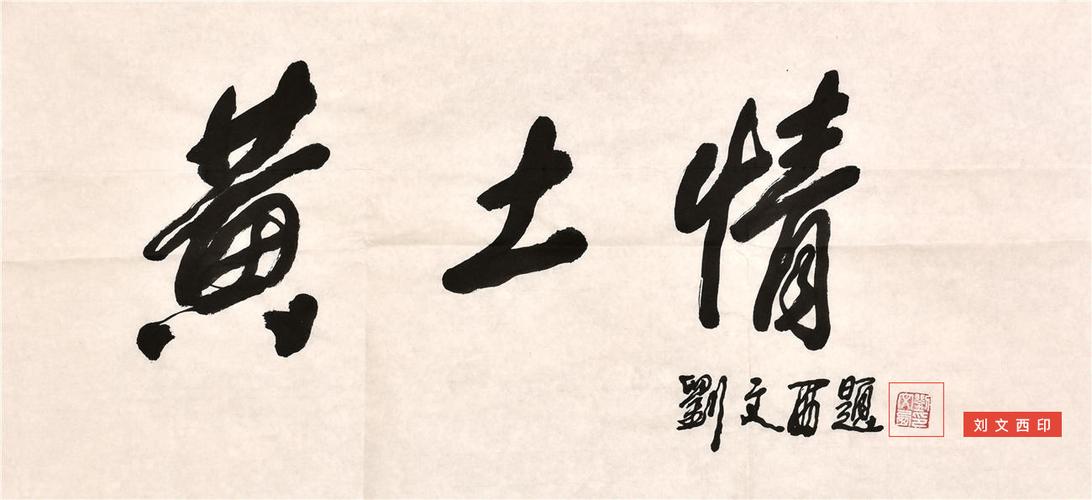 黄土情
劉文西題
刘文西印